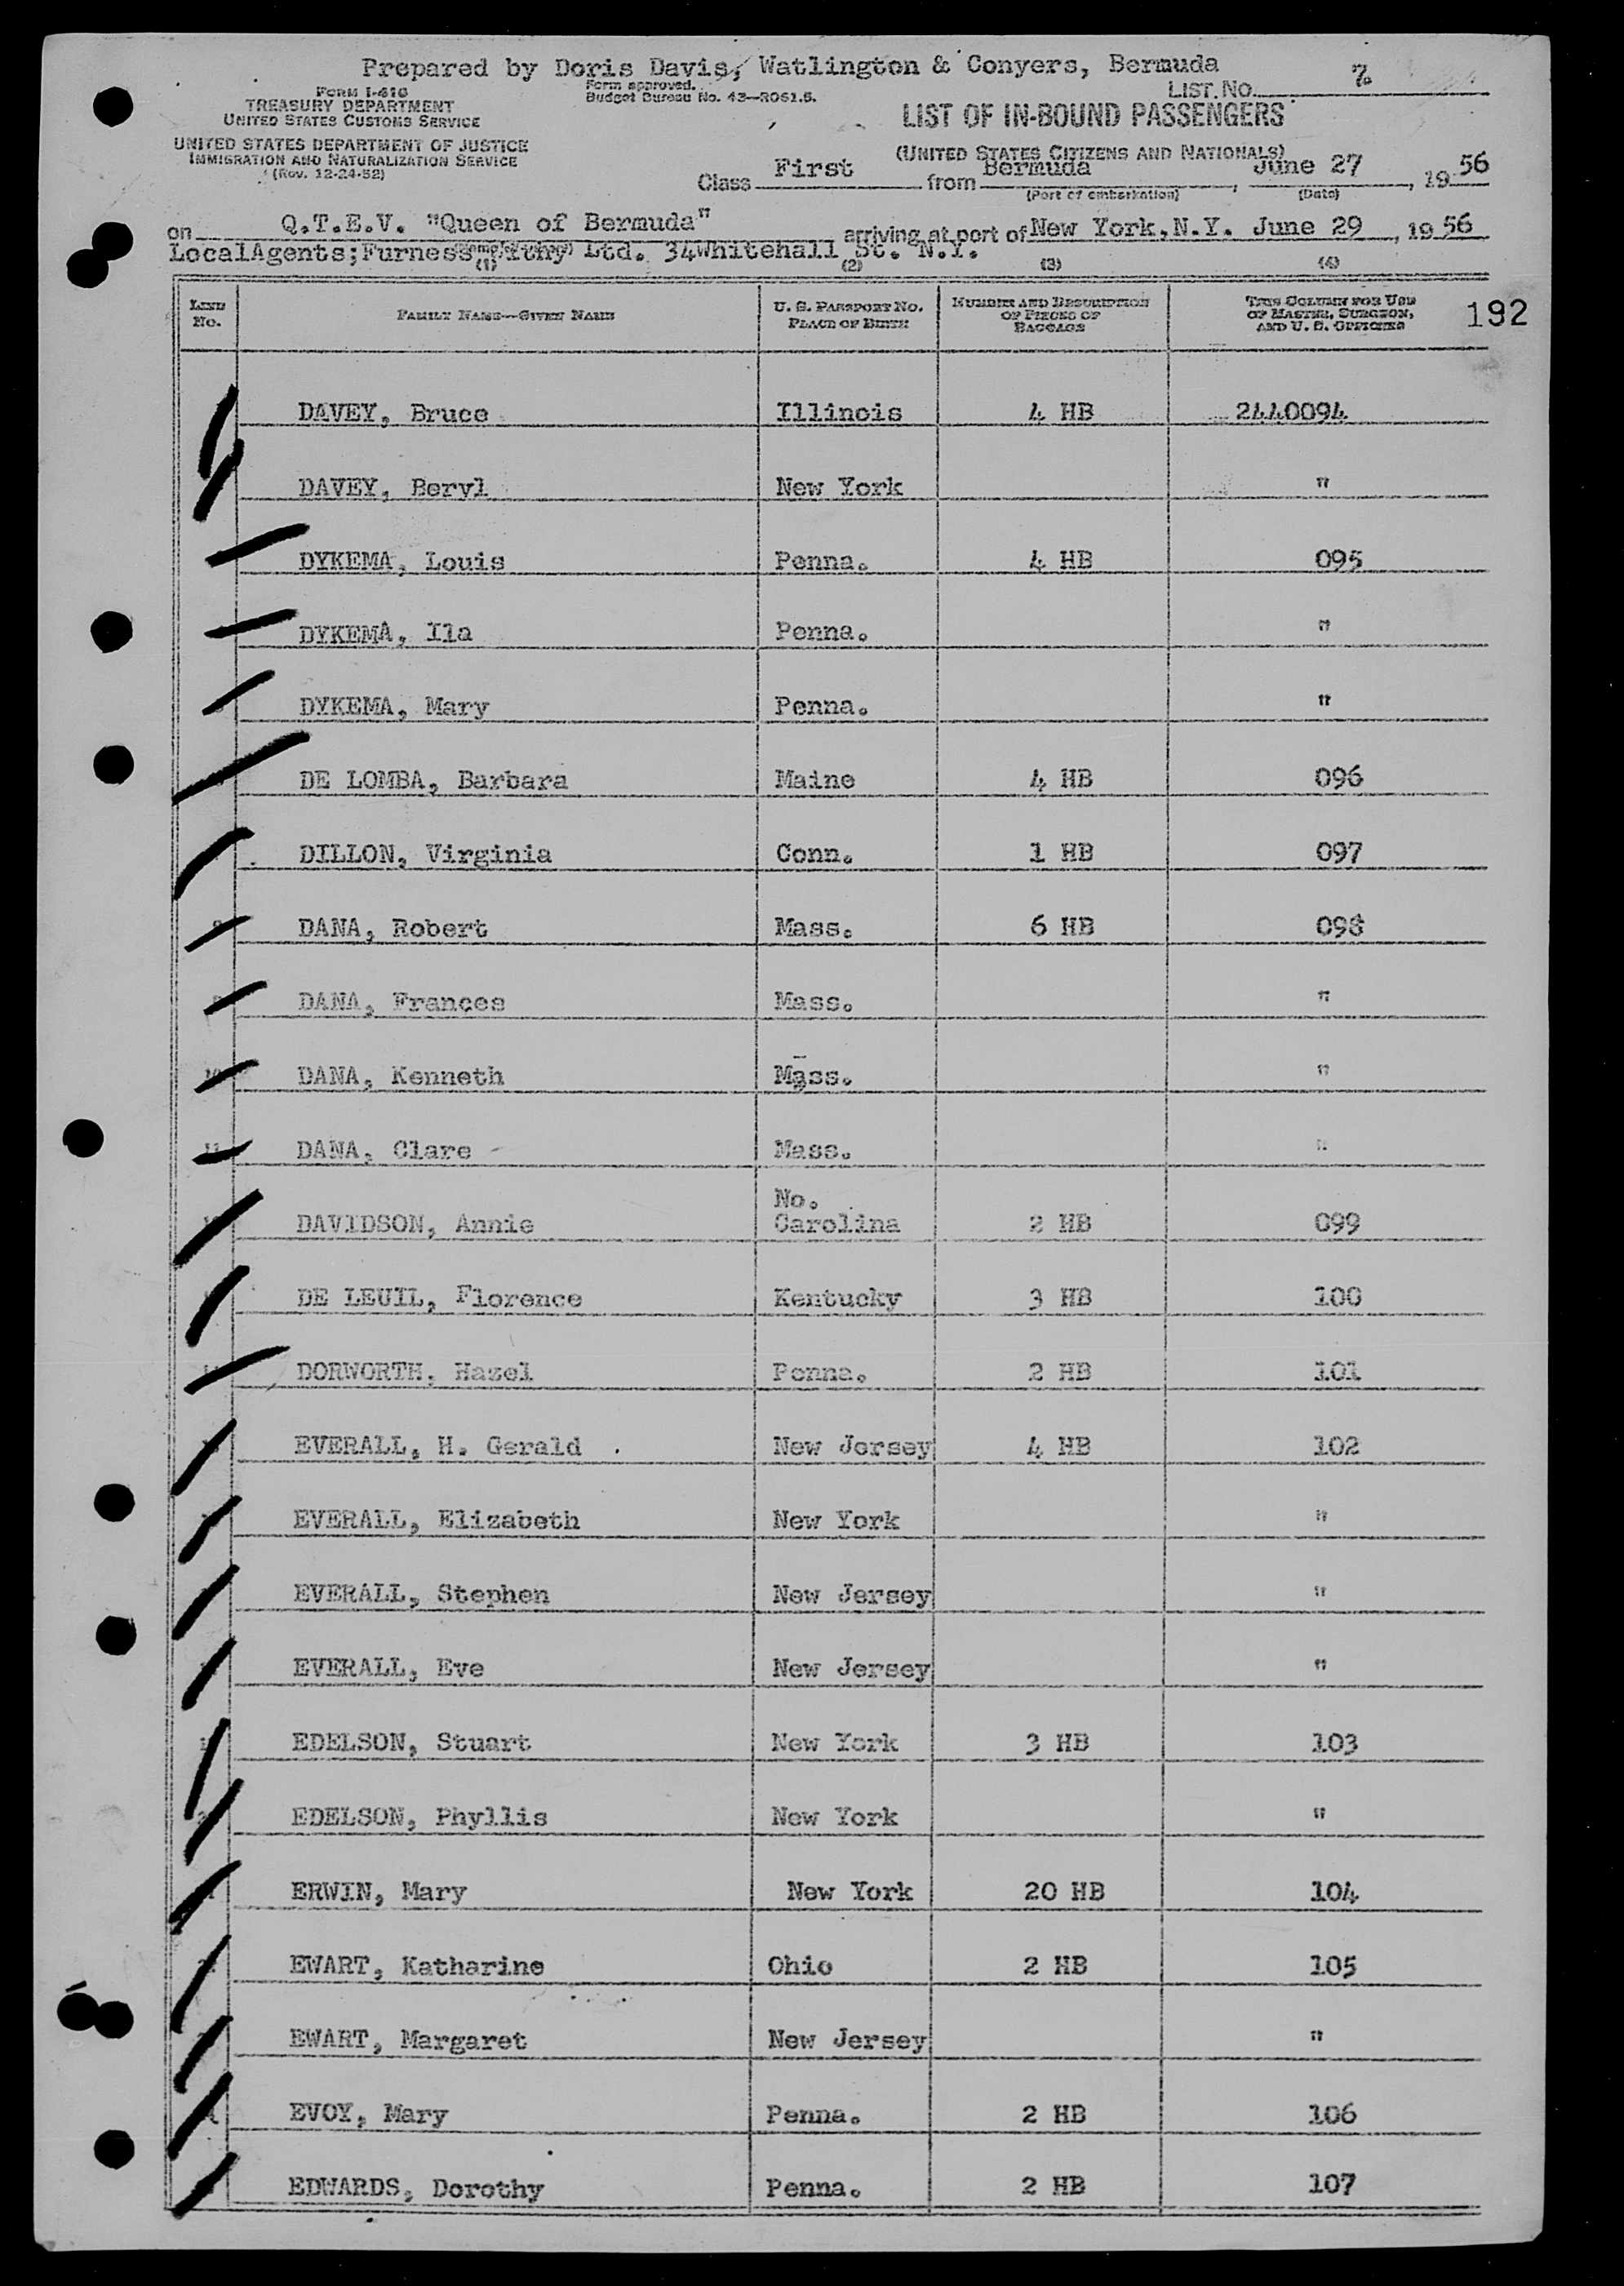 Prepared by Doris Davis, Watlington & Conyers, Bermuda
FORM I-416
TREASURY DEPARTMENT
UNITED STATES CUSTOMS SERVICE
UNITED STATES DEPARTMENT OF JUSTICE
IMMIGRATION AND NATURALIZATION SERVICE
(Rev. 12-24-52)
Form approved.
Budget Bureau No. 43-R061.5.
LIST NO. 7
LIST OF IN-BOUND PASSENGERS
(UNITED STATES CITIZENS AND NATIONALS)
Class First from Bermuda, June 27, 1956
(Port of embarkation) (Date)
on Q.T.E.V. "Queen of Bermuda" arriving at port of New York, N.Y. June 29, 1956
LocalAgents;Furness Withy Ltd. 34Whitehall St. N.Y.
(1) (2) (3) (4)
LINE No. FAMILY NAME—GIVEN NAME U. S. PASSPORT NO. PLACE OF BIRTH NUMBER AND DESCRIPTION OF PIECES OF BAGGAGE THIS COLUMN FOR USE OF MASTER, SURGEON, AND U. S. OFFICERS 192
DAVEY, Bruce Illinois 4 HB 2440094
DAVEY, Beryl New York "
DYKEMA, Louis Penna. 4 HB 095
DYKEMA, Ila Penna. "
DYKEMA, Mary Penna. "
DE LOMBA, Barbara Maine 4 HB 096
DILLON, Virginia Conn. 1 HB 097
DANA, Robert Mass. 6 HB 098
DANA, Frances Mass. "
10 DANA, Kenneth Mass. "
11 DANA, Clare Mass. "
No.
DAVIDSON, Annie Carolina 2 HB 099
DE LEUIL, Florence Kentucky 3 HB 100
DORWORTH, Hazel Penna. 2 HB 101
EVERALL, H. Gerald New Jersey 4 HB 102
EVERALL, Elizabeth New York "
EVERALL, Stephen New Jersey "
EVERALL, Eve New Jersey "
EDELSON, Stuart New York 3 HB 103
EDELSON, Phyllis New York "
ERWIN, Mary New York 20 HB 104
EWART, Katharine Ohio 2 HB 105
EWART, Margaret New Jersey "
EVOY, Mary Penna. 2 HB 106
EDWARDS, Dorothy Penna. 2 HB 107